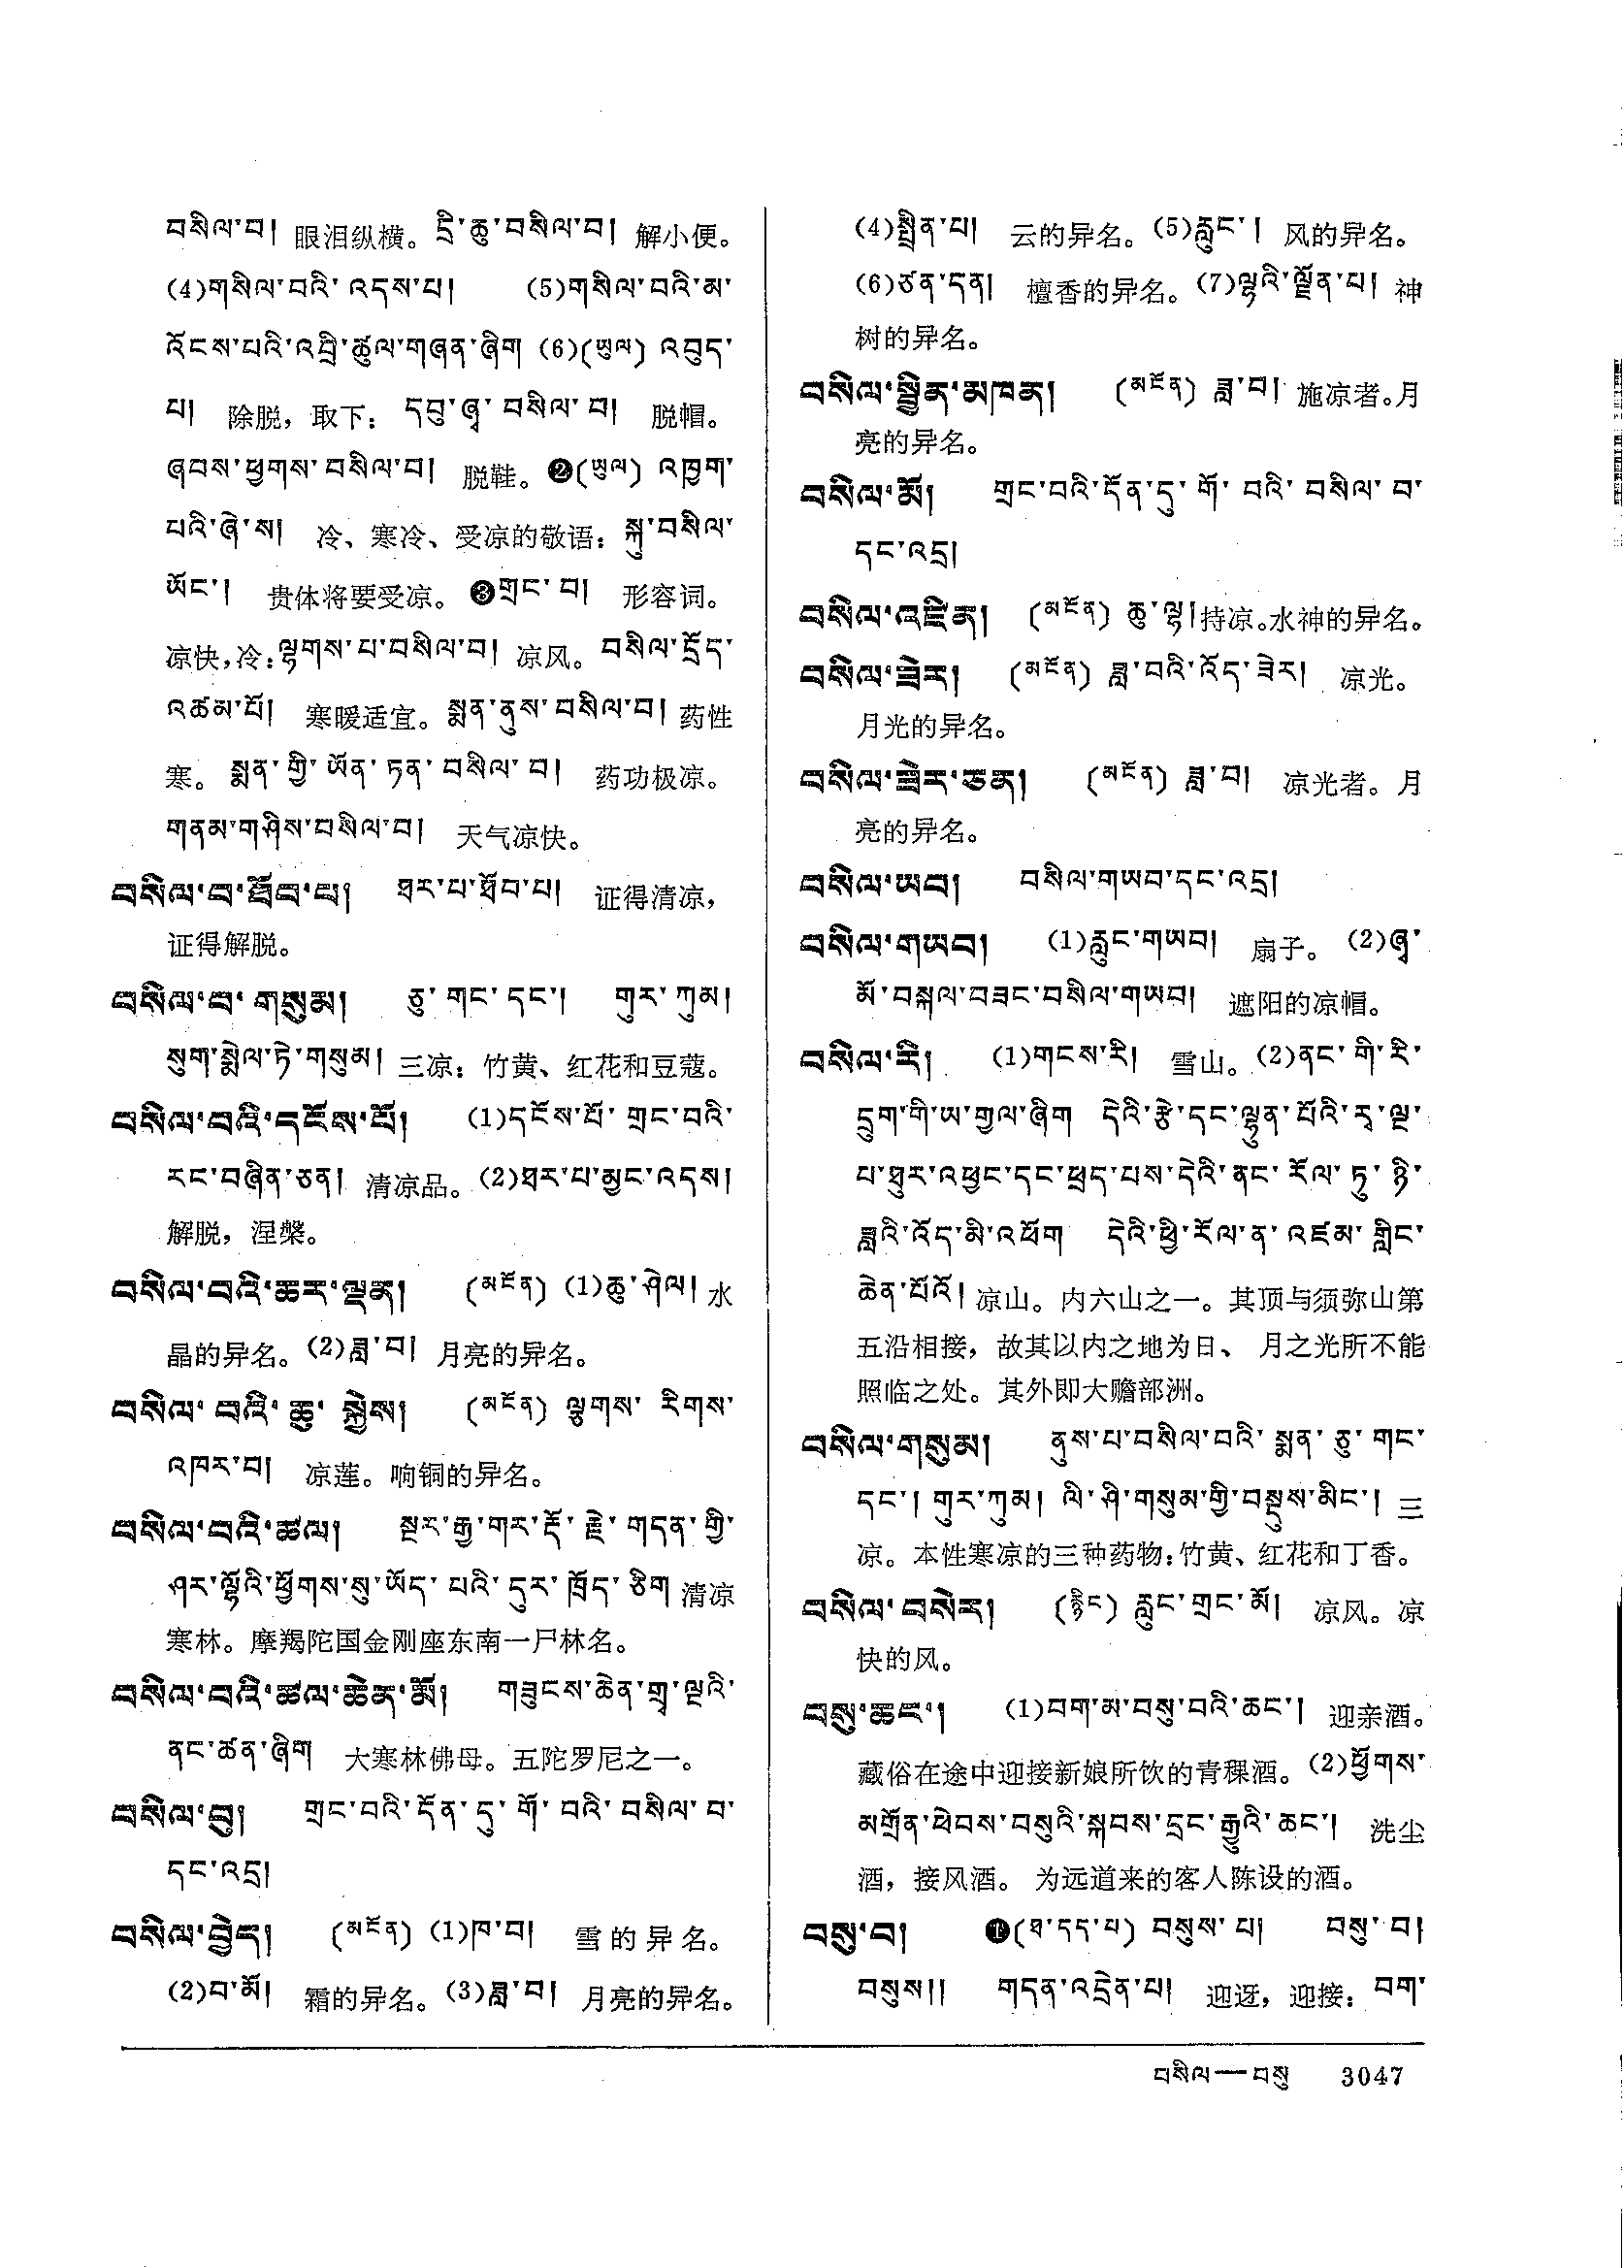 བསིལ་བ། 眼泪纵横。དྲི་ཆུ་བསིལ་བ། 解小便。
(4)གསིལ་བའི་འདས་པ། (5)གསིལ་བའི་མ་
འོངས་པའི་འབྲི་ཚུལ་གཞན་ཞིག (6)(ཡུལ) འབུད་
པ། 除脱，取下：དབུ་ཞྭ་བསིལ་བ། 脱帽。
ཞབས་ཕྱགས་བསིལ་བ། 脱鞋。❷(ཡུལ) འཁྱག་
པའི་ཞེ་ས། 冷、寒冷、受凉的敬语：སྐུ་བསིལ་
ཡོང་། 贵体将要受凉。❸གྲང་བ། 形容词。
凉快，冷：ལྷགས་པ་བསིལ་བ། 凉风。བསིལ་དྲོད་
འཚམ་པོ། 寒暖适宜。སྨན་ནུས་བསིལ་བ། 药性
寒。སྨན་གྱི་ཡོན་ཏན་བསིལ་བ། 药功极凉。
གནམ་གཤིས་བསིལ་བ། 天气凉快。
བསིལ་བ་ཐོབ་པ། ཐར་པ་ཐོབ་པ། 证得清凉，
证得解脱。
བསིལ་བ་གསུམ། ཅུ་གང་དང་། གུར་ཀུམ།
སུག་སྨེལ་ཏེ་གསུམ། 三凉：竹黄、红花和豆蔻。
བསིལ་བའི་དངོས་པོ། (1)དངོས་པོ་གྲང་བའི་
རང་བཞིན་ཅན། 清凉品。(2)ཐར་པ་མྱང་འདས།
解脱，涅槃。
བསིལ་བའི་ཆར་ལྡན། (མངོན) (1)ཆུ་ཤེལ། 水
晶的异名。(2)ཟླ་བ། 月亮的异名。
བསིལ་བའི་ཆུ་སྐྱེས། (མངོན) ལྕགས་རིགས་
འཁར་བ། 凉莲。响铜的异名。
བསིལ་བའི་ཚལ། སྔར་རྒྱ་གར་རྡོ་རྗེ་གདན་གྱི་
ཤར་ལྷོའི་ཕྱོགས་སུ་ཡོད་པའི་དུར་ཁྲོད་ཅིག 清凉
寒林。摩羯陀国金刚座东南一尸林名。
བསིལ་བའི་ཚལ་ཆེན་མོ། གཟུངས་ཆེན་གྲྭ་ལྔའི་
ནང་ཚན་ཞིག 大寒林佛母。五陀罗尼之一。
བསིལ་བུ། གྲང་བའི་དོན་དུ་གོ་བའི་བསིལ་བ་
དང་འདྲ།
བསིལ་བྱེད། (མངོན) (1)ཁ་བ། 雪的异名。
(2)བ་མོ། 霜的异名。(3)ཟླ་བ། 月亮的异名。
(4)སྤྲིན་པ། 云的异名。(5)རླུང་། 风的异名。
(6)ཙན་དན། 檀香的异名。(7)ལྷའི་ལྗོན་པ། 神
树的异名。
བསིལ་སྦྱིན་མཁན། (མངོན) ཟླ་བ། 施凉者。月
亮的异名。
བསིལ་མོ། གྲང་བའི་དོན་དུ་གོ་བའི་བསིལ་བ་
དང་འདྲ།
བསིལ་འཛིན། (མངོན) ཆུ་ལྷ། 持凉。水神的异名。
བསིལ་ཟེར། (མངོན) ཟླ་བའི་འོད་ཟེར། 凉光。
月光的异名。
བསིལ་ཟེར་ཅན། (མངོན) ཟླ་བ། 凉光者。月
亮的异名。
བསིལ་ཡབ། བསིལ་གཡབ་དང་འདྲ།
བསིལ་གཡབ། (1)རླུང་གཡབ། 扇子。(2)ཞྭ་
མོ་བསྐལ་བཟང་བསིལ་གཡབ། 遮阳的凉帽。
བསིལ་རི། (1)གངས་རི། 雪山。(2)ནང་གི་རི་
དྲུག་གི་ཡ་གྱལ་ཞིག དེའི་རྩེ་དང་ལྷུན་པོའི་རྭ་ལྔ་
པ་ཐུར་འཕྱང་དང་ཕྲད་པས་དེའི་ནང་རོལ་ཏུ་ཉི་
ཟླའི་འོད་མི་འཕོག དེའི་ཕྱི་རོལ་ན་འཛམ་གླིང་
ཆེན་པོའོ། 凉山。内六山之一。其顶与须弥山第
五沿相接，故其以内之地为日、月之光所不能
照临之处。其外即大赡部洲。
བསིལ་གསུམ། ནུས་པ་བསིལ་བའི་སྨན་ཅུ་གང་
དང་། གུར་ཀུམ། ལི་ཤི་གསུམ་གྱི་བསྡུས་མིང་། 三
凉。本性寒凉的三种药物：竹黄、红花和丁香。
བསིལ་བསེར། (རྙིང) རླུང་གྲང་མོ། 凉风。凉
快的风。
བསུ་ཆང་། (1)བག་མ་བསུ་བའི་ཆང་། 迎亲酒。
藏俗在途中迎接新娘所饮的青稞酒。(2)ཕྱོགས་
མགྲོན་ཕེབས་བསུའི་སྐབས་དྲང་རྒྱུའི་ཆང་། 洗尘
酒，接风酒。为远道来的客人陈设的酒。
བསུ་བ། ❶(ཐ་དད་པ) བསུས་པ། བསུ་བ།
བསུས།། གདན་འདྲེན་པ། 迎迓，迎接：བག་
བསིལ—བསུ 3047